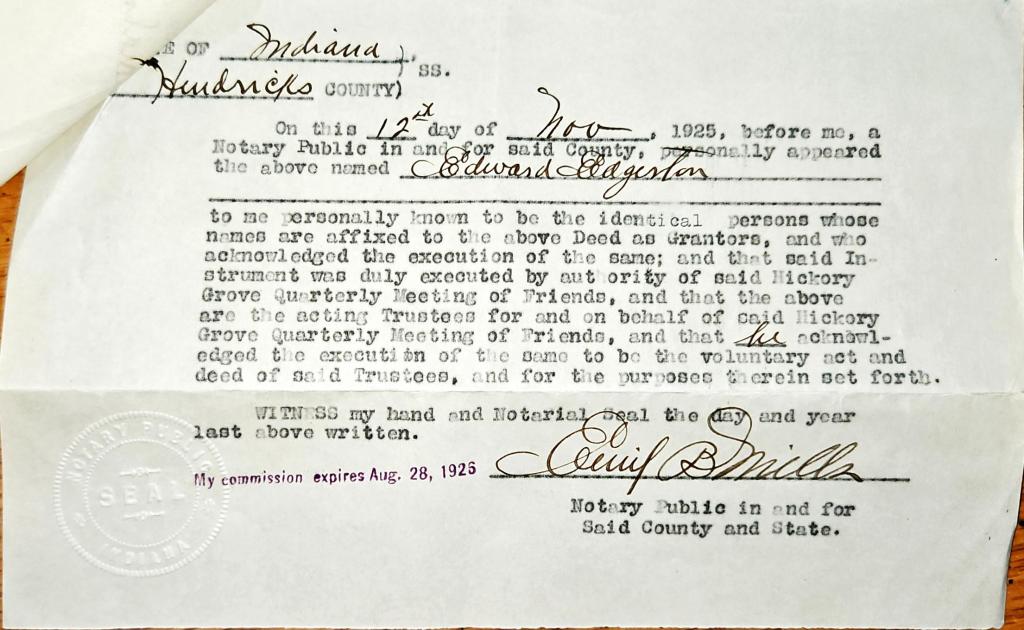 E OF Indiana )
) SS.
Hendricks COUNTY)
On this 12st day of Nov, 1925, before me, a
Notary Public in and for said County, personally appeared
the above named Edward Edgerton
to me personally known to be the identical persons whose
names are affixed to the above Deed as Grantors, and who
acknowledged the execution of the same; and that said In-
strument was duly executed by authority of said Hickory
Grove Quarterly Meeting of Friends, and that the above
are the acting Trustees for and on behalf of said Hickory
Grove Quarterly Meeting of Friends, and that he acknowl-
edged the execution of the same to be the voluntary act and
deed of said Trustees, and for the purposes therein set forth.
WITNESS my hand and Notarial Seal the day and year
last above written.
My commission expires Aug. 28, 1926
B Mills
Notary Public in and for
Said County and State.
NOTARY PUBLIC
SEAL
INDIANA